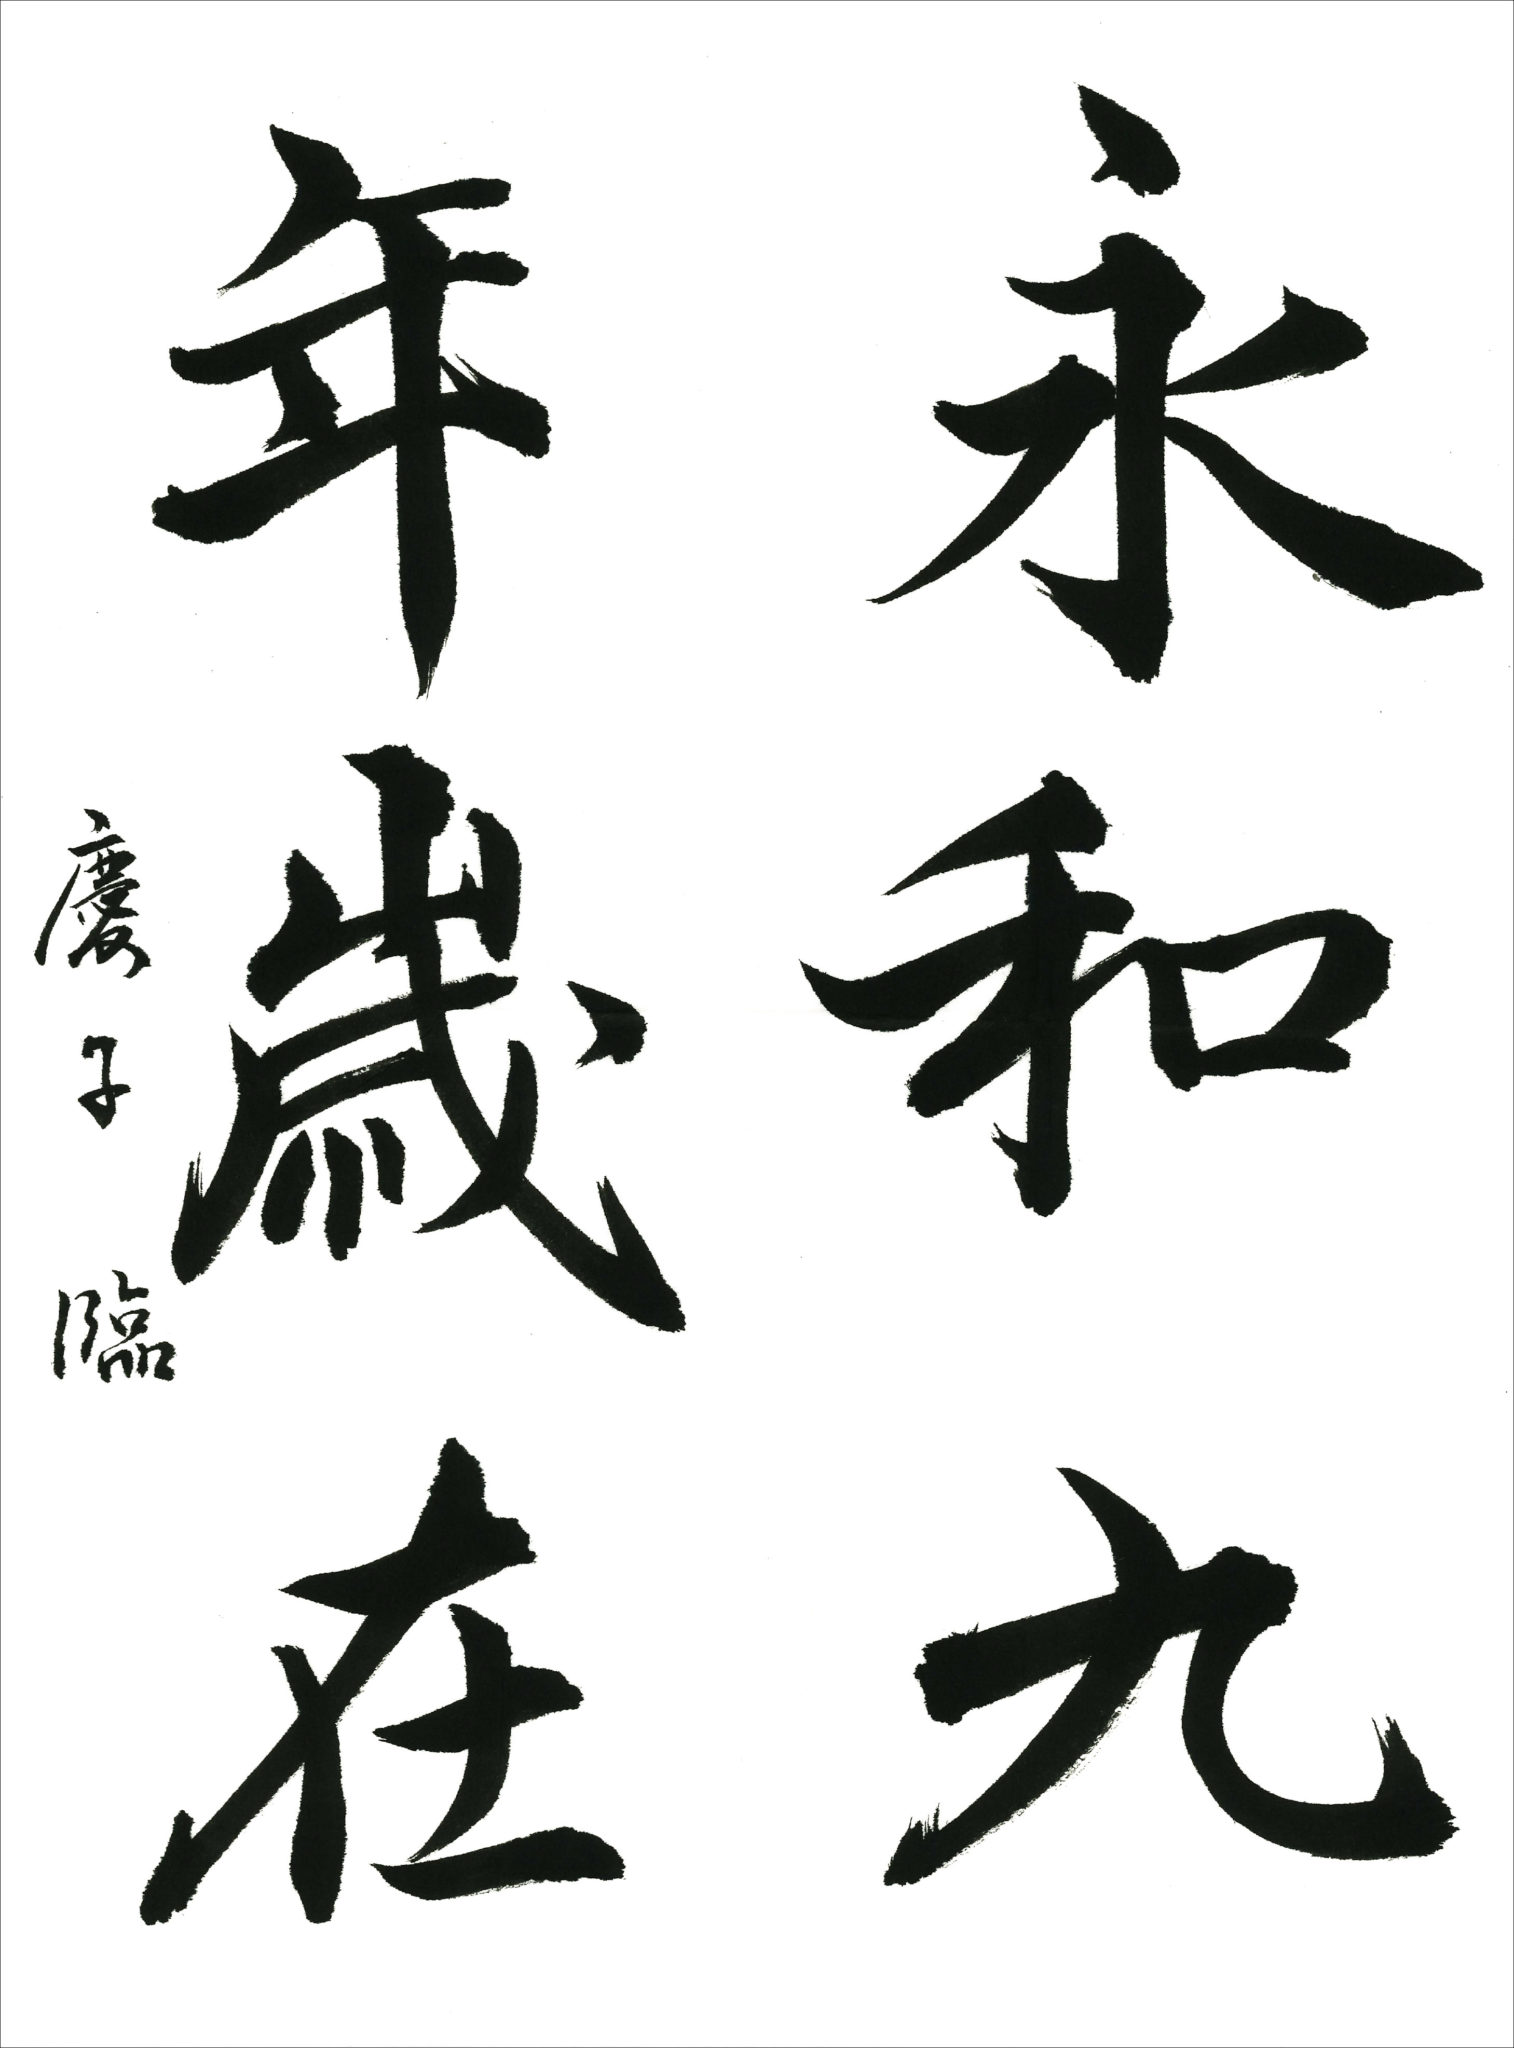 永和九
年歳在
慶子臨